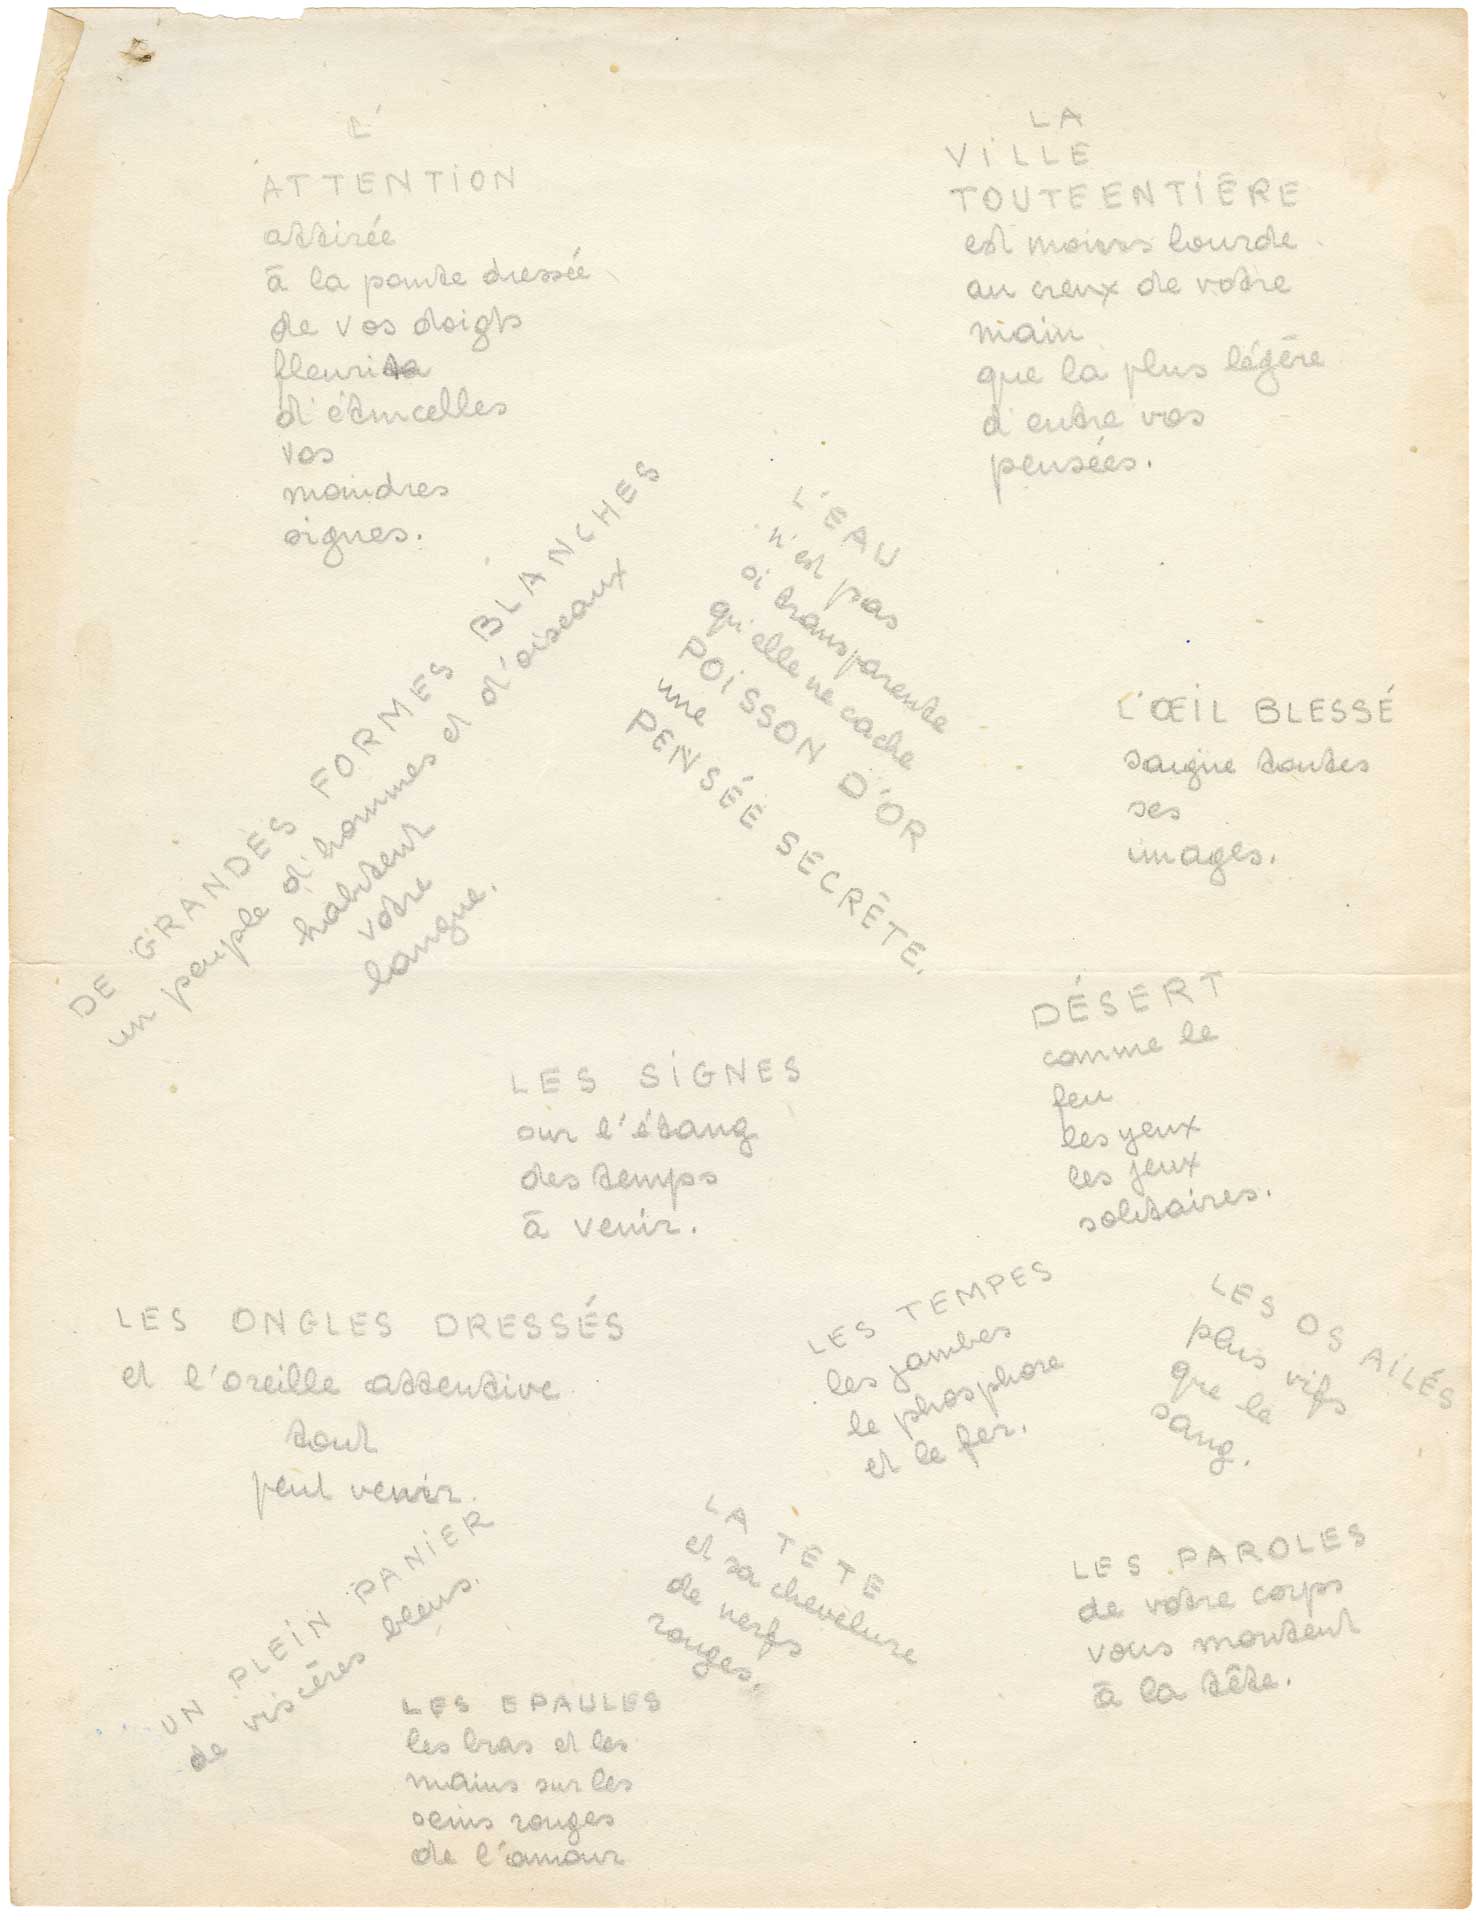 L'
ATTENTION
attirée
à la pointe dressée
de vos doigts
fleurit
d'étincelles
vos
moindres
signes.
LA
VILLE
TOUTE ENTIÈRE
est moins lourde
au creux de votre
main
que la plus légère
d'entre vos
pensées.
DE GRANDES FORMES BLANCHES
un peuple d'hommes et d'oiseaux
habitent
votre
langue.
L'EAU
n'est pas
si transparente
qu'elle ne cache
POISSON D'OR
une
PENSÉE SECRÈTE.
L'ŒIL BLESSÉ
saigne toutes
ses
images.
LES SIGNES
sur l'étang
des temps
à venir.
DÉSERT
comme le
feu
les yeux
les jeux
solitaires.
LES ONGLES DRESSÉS
et l'oreille attentive
tout
peut venir.
LES TEMPES
les jambes
le phosphore
et le fer.
LES OS AILÉS
plus vifs
que le
sang.
UN PLEIN PANIER
de viscères bleus.
LA TÊTE
et sa chevelure
de nerfs
rouges.
LES PAROLES
de votre corps
vous montent
à la tête.
LES EPAULES
les bras et les
mains sur les
seins rouges
de l'amour